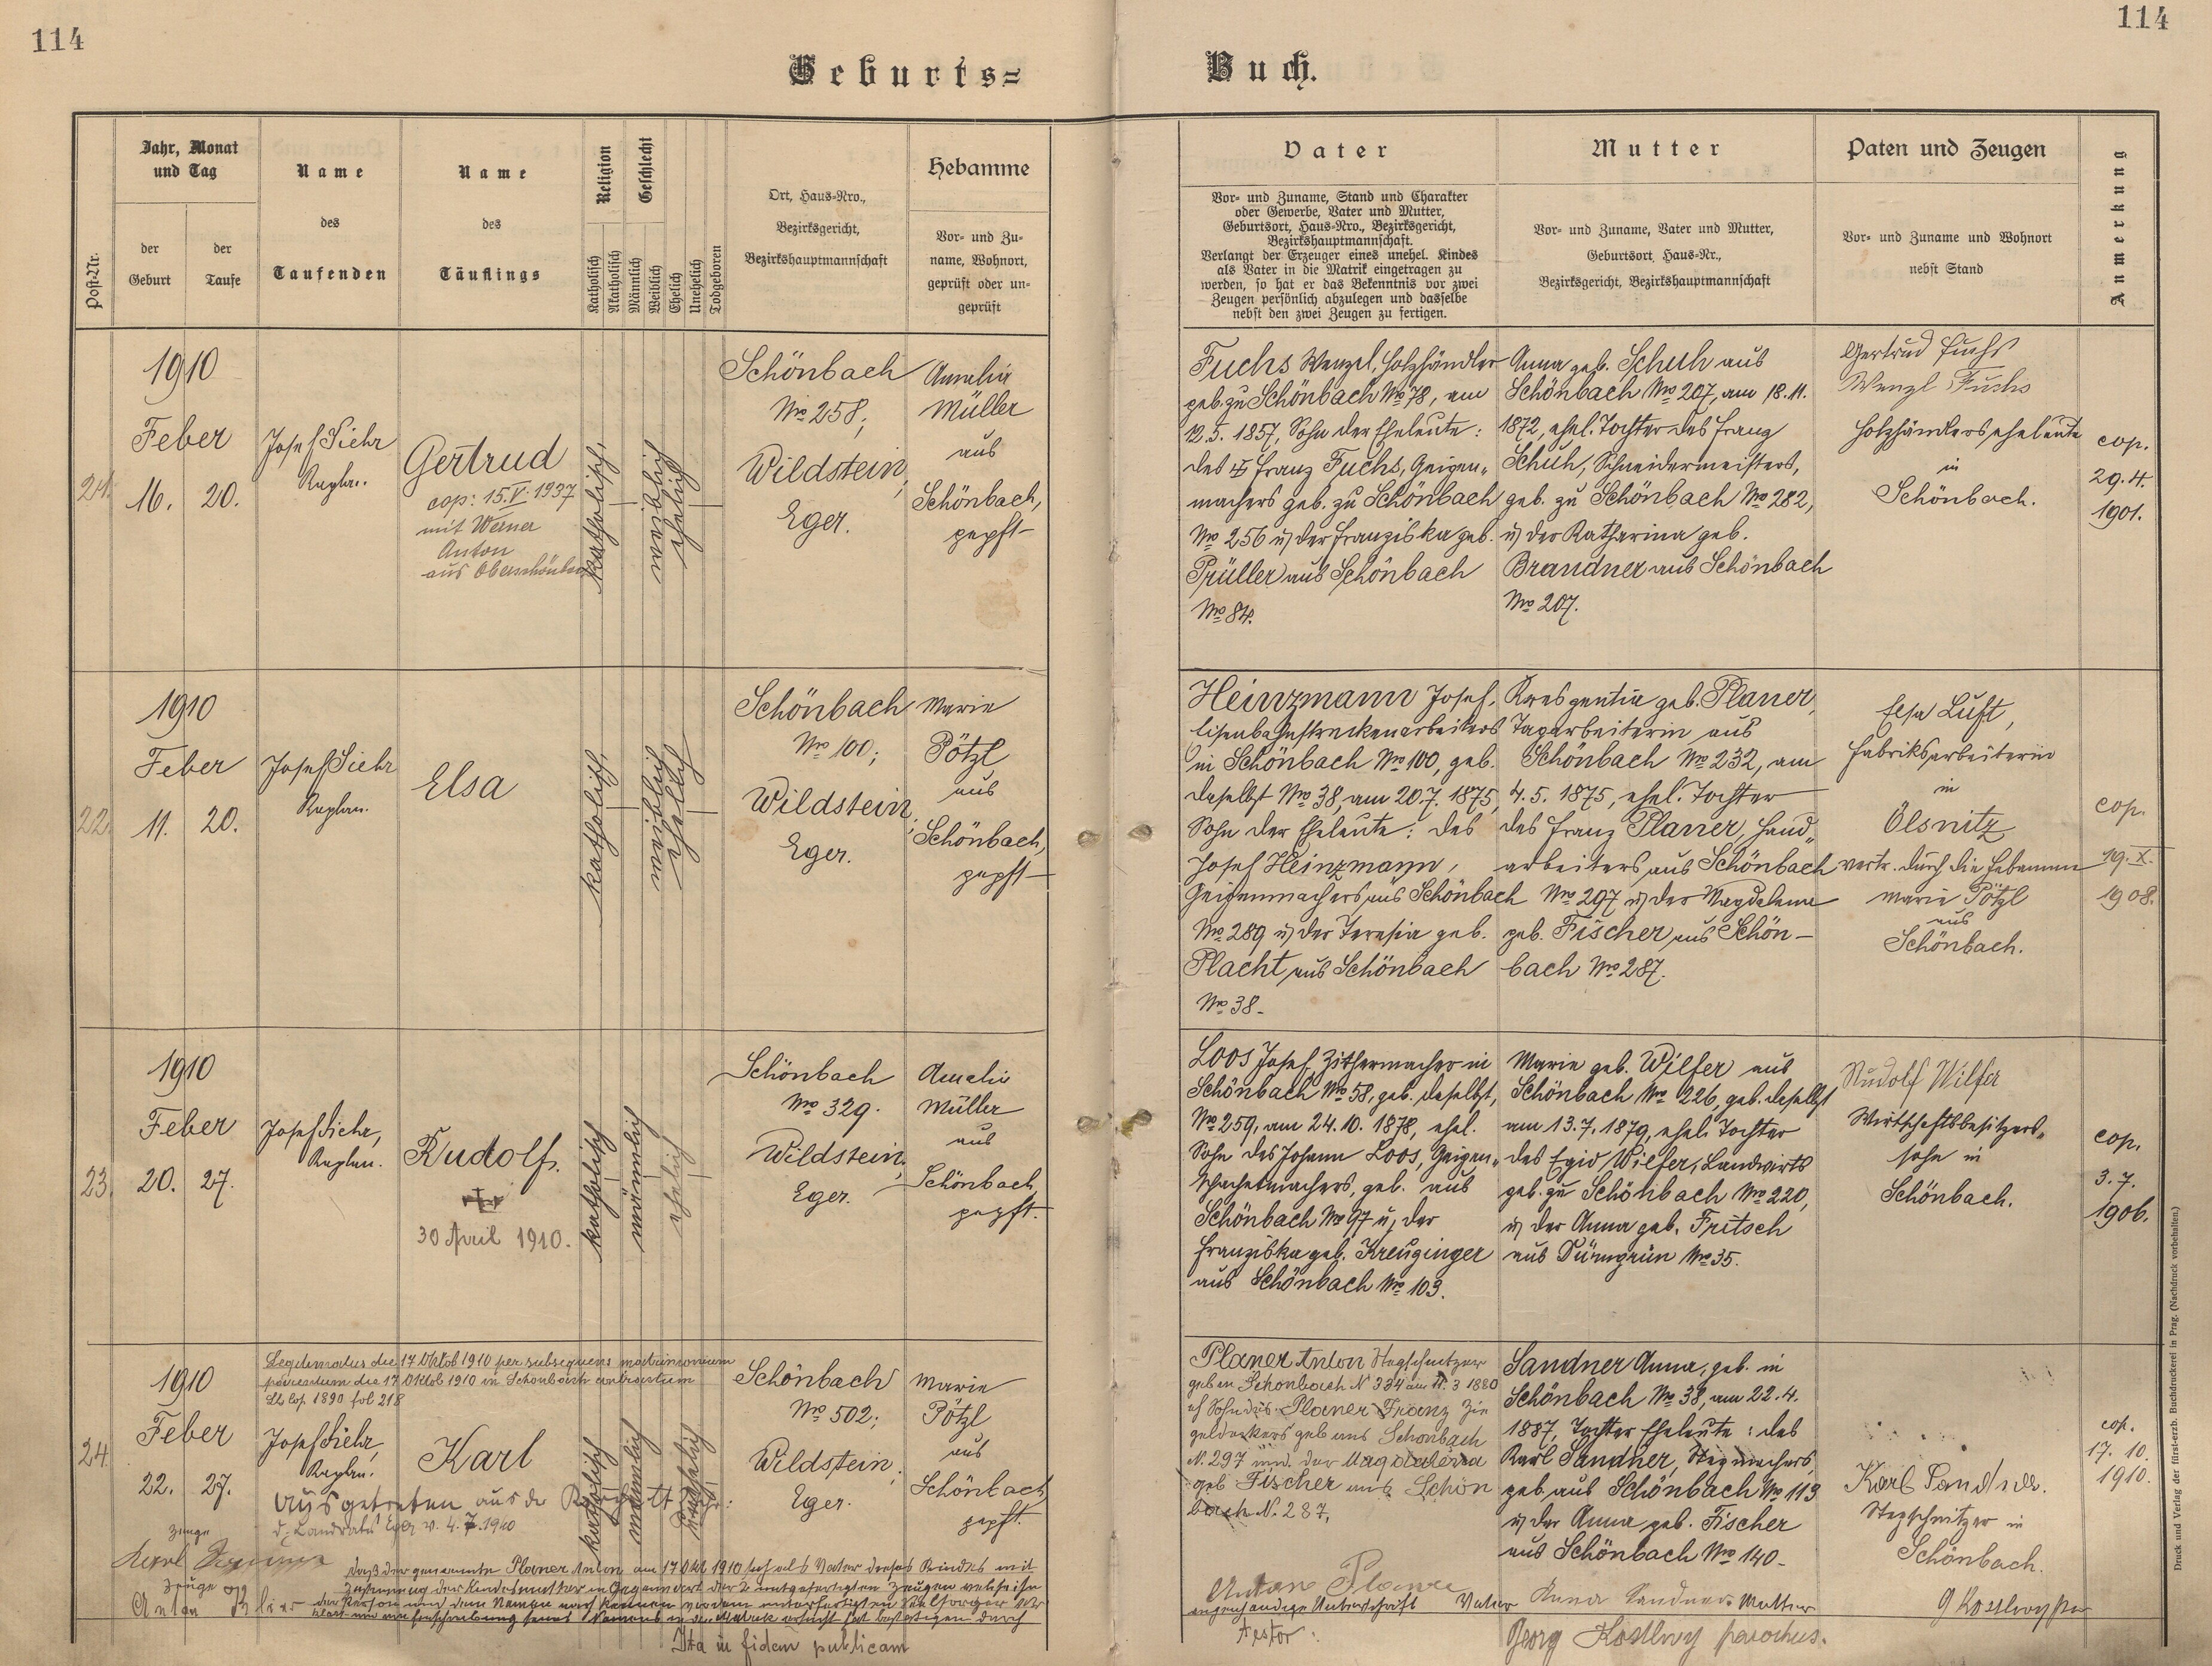 114
114
Geburts=
Buch.
Post-Nr.
Jahr, Monat
und Tag
der
Geburt
der
Taufe
Name
des
Taufenden
Name
des
Täuflings
Religion
Katholisch
Akatholisch
Geschlecht
Männlich
Weiblich
Ehelich
Unehelich
Todgeboren
Ort, Haus-Nro.,
Bezirksgericht,
Bezirkshauptmannschaft
Hebamme
Vor- und Zu-
name, Wohnort,
geprüft oder un-
geprüft
Vater
Vor- und Zuname, Stand und Charakter
oder Gewerbe, Vater und Mutter,
Geburtsort, Haus-Nro., Bezirksgericht,
Bezirkshauptmannschaft.
Verlangt der Erzeuger eines unehel. Kindes
als Vater in die Matrik eingetragen zu
werden, so hat er das Bekenntnis vor zwei
Zeugen persönlich abzulegen und dasselbe
nebst den zwei Zeugen zu fertigen.
Mutter
Vor- und Zuname, Vater und Mutter,
Geburtsort, Haus-Nr.,
Bezirksgericht, Bezirkshauptmannschaft
Paten und Zeugen
Vor- und Zuname und Wohnort
nebst Stand
Anmerkung
21.
1910
Feber
16. 20.
Josef Siehr
Kaplan.
Gertrud
cop: 15.V.1937
mit Werner
Anton
aus Oberschönbach
katholisch
weiblich
ehelich
Schönbach
No 258;
Wildstein,
Eger.
Amalia
Müller
aus
Schönbach,
gepft
Fuchs Wenzel, Holzhändler
geb. zu Schönbach No 78, am
12.5. 1857, Sohn der Eheleute:
des Franz Fuchs, Geigen-
machers geb. zu Schönbach
No 256 u. der Franziska geb.
Prüller aus Schönbach
No 84.
Anna geb. Schuh aus
Schönbach No 207, am 18.11.
1872, ehel. Tochter des Franz
Schuh, Schneidermeisters,
geb. zu Schönbach No 282,
u. der Katharina geb.
Brandner aus Schönbach
No 207.
Gertrud Fuchs
Wenzl Fuchs
Holzhändlerseheleute
in
Schönbach.
cop.
29.4.
1901.
22.
1910
Feber
11. 20.
Josef Siehr
Kaplan.
Elsa
katholisch,
weiblich
ehelich
Schönbach
No 100;
Wildstein,
Eger.
Marie
Pötzl
aus
Schönbach,
gepft
Heinzmann Josef,
Eisenbahnstreckenarbeiters
in Schönbach No 100, geb.
daselbst No 38, am 20.7. 1875,
Sohn der Eheleute: des
Josef Heinzmann,
Geigenmachers aus Schönbach
No 289 u. der Teresia geb.
Placht aus Schönbach
No 38.
Kreszentia geb. Planer,
Tagarbeiterin aus
Schönbach No 232, am
4. 5. 1875, ehel. Tochter
des Franz Planer, Hand-
arbeiters aus Schönbach
No 297 u. der Magdalena
geb. Fischer aus Schön-
bach No 287.
Elsa Luft,
Fabriksarbeiterin
in
Ölsnitz
vertr. durch die Hebamme
Marie Pötzl
aus
Schönbach.
cop.
19.X.
1908.
23.
1910
Feber
20. 27.
Josef Siehr,
Kaplan.
Rudolf.
30 April 1910.
katholisch
männlich
ehelich
Schönbach
No 329.
Wildstein,
Eger.
Amalia
Müller
aus
Schönbach,
gepft.
Loos Josef, Zithermacher in
Schönbach No 58, geb. daselbst,
No 259, am 24.10. 1878, ehel.
Sohn des Johann Loos, Geigen-
schachtelmachers, geb. aus
Schönbach No 97 u. der
Franziska geb. Kreuzinger
aus Schönbach No 103.
Marie geb. Wilfer aus
Schönbach No 226, geb. daselbst
am 13.7.1879, ehel. Tochter
des Egid Wilfer, Landwirts
geb. zu Schönbach No 220,
u. der Anna geb. Fritsch
aus Dürngrün No 35.
Rudolf Wilfer
Wirtschaftsbesitzers-
sohn in
Schönbach.
cop.
3.7.
1906.
24.
Legitimatus die 17 Oktob 1910 per subsequens matrimonium
parentum die 17 Oktob 1910 in Schönbach contractum
Lb cop. 1890 fol 218
1910
Feber
22. 27.
Josef Siehr,
Kaplan.
Karl
ausgetreten aus der
d. Landrats Eger v. 4.7.1940
katholisch
männlich
unehelich
Schönbach
No 502;
Wildstein,
Eger.
Marie
Pötzl
aus
Schönbach
gepft.
Planer Anton Stegschnitzer
geb in Schönbach N 334 am 11. 3 1880
eh Sohn des Planer Franz Zie
geldeckers geb aus Schönbach
N. 297 und der Magdalena
geb Fischer aus Schön
bach N. 287,
Sandner Anna, geb. in
Schönbach No 38, am 22.4.
1887, Tochter Eheleute: des
Karl Sandner, Stegmachers
geb. aus Schönbach No 113
u. der Anna geb. Fischer
aus Schönbach No 140.
Karl Sandner.
Stegschnitzer in
Schönbach.
cop.
17. 10.
1910.
Zeuge
Karl
Zeuge
Anton
Daß der genannte Planer Anton am 17 Okt 1910 sich als Vater dieses Kindes mit
Zustimmung der Kindesmutter in Gegenwart der 2 mitgefertigten Zeugen welche ihn
der Person und dem Namen nach kennen vor dem unterfertigten Seelsorger er-
klärt und um Einschreibung seines Namens in die Matrik ersucht hat bestätigen durch
Anton Planer
eigenhändige Unterschrift Vater Anna Sandner Mutter
G Kostlivy
Ita in fidem publicam
Testor:
Georg Kostlivy parochus.
Druck und Verlag der fürst-erzb. Buchdruckerei in Prag. (Nachdruck vorbehalten.)